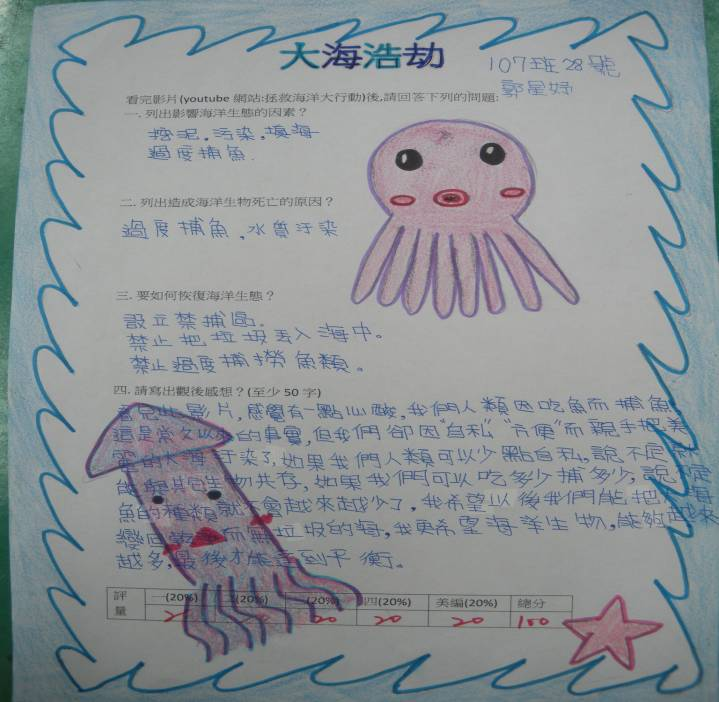 大海浩劫
107班28號
郭星妤
看完影片(youtube 網站:拯救海洋大行動)後,請回答下列的問題:
一. 列出影響海洋生態的因素?
挖泥,污染,填海
過度捕魚.
二. 列出造成海洋生物死亡的原因?
過度捕魚,水質汙染
三. 要如何恢復海洋生態?
設立禁捕區.
禁止把垃圾丟入海中。
禁止過度捕撈魚類。
四. 請寫出觀後感想?(至少 50 字)
看完此影片,感覺有一點心酸,我們人類因吃魚而捕魚
這是常久以來的事實,但我們卻因"自私""方便"而親手把
大海汙染了,如果我們人類可以少點自私,說不定
能與其它生物共存,如果我們可以吃多少捕多少,說不定
魚的種類就不會越來越少了,我希望以後我們能把
變回 而無垃圾的海,我更希望海洋生物,能夠越來
越多,最後才能達到平衡。
評量 一(20%) 二(20%) 三(20%) 四(20%) 美編(20%) 總分
20 20 20 20 100